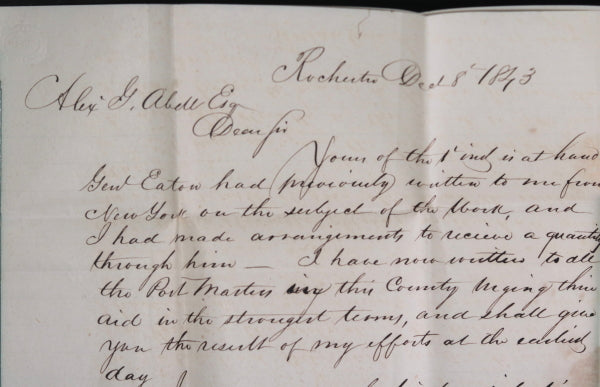 Rochester Decr 8th 1843
Alex G. Abell Esq
Dear Sir
Yours of the 1st ind is at hand
Genl Eaton had previously written to me from
New York on the subject of the Work, and
I had made arrangements to recieve a quantity
through him — I have now written to all
the Post Masters in this County urging their
aid in the strongest terms, and shall give
you the result of my efforts at the earliest
day